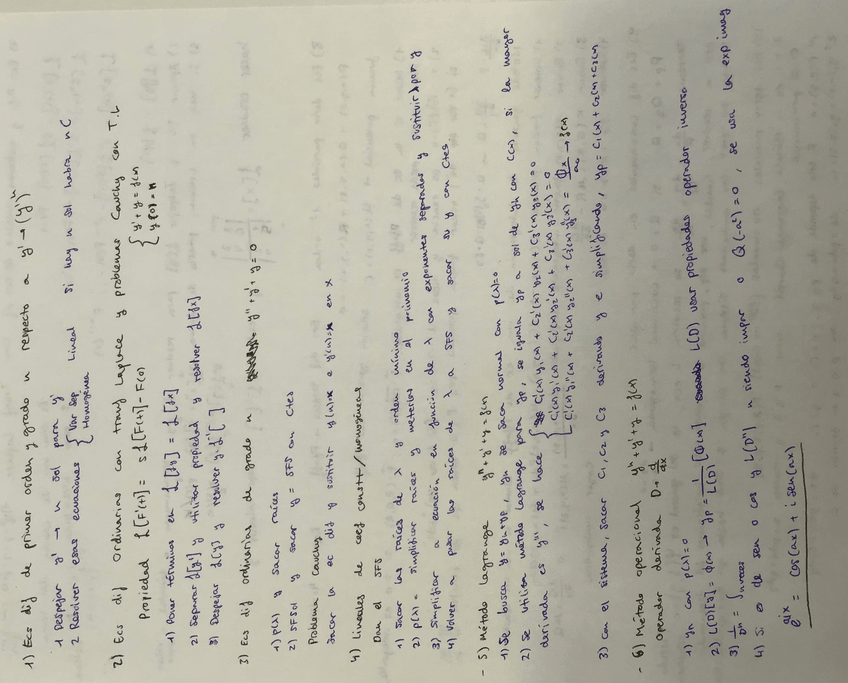 1) Ecs dif de primer orden y grado n respecto a y' → (y')ⁿ
1 Despejar y' → n sol para y'
2 Resolver esas ecuaciones { Var sep Lineal Si hay n sol habra n C
Homogenea
2) Ecs dif Ordinarias con transf Laplace y problemas Cauchy con T.L
Propiedad L[F'(t)] = s L[F(t)] - F(0) { y'+y = f(x)
y(0) = n
1) Poner términos en L[fy] = L[fx]
2) Separar L[y'] y utilizar propiedad y resolver L[fx]
3) Despejar L[y] y resolver y = L⁻¹[ ]
3) Ecs dif ordinarias de grado n y''+y'+y = 0
1) p(λ) y sacar raíces
2) SFSol y sacar y = SFS con Ctes
Problema Cauchy
Sacar la ec dif y sustituir y(n)=x e y'(n)=x en x
4) Lineales de coef constt/homogéneas
Dan el SFS
1) Sacar las raíces de λ y orden mínimo
2) p(λ) = simplificar raíces y meterlas en el polinomio
3) Simplificar a ecuación en función de λ con exponentes separados y sustituir λ por y
4) Volver a pasar las raíces de λ a SFS y sacar su y con Ctes
- 5) Método Lagrange y''+y'+y = f(x)
1) Se busca y = yh+yp, yh se saca normal con p(λ)=0
2) Se utiliza método Lagrange para yp, se iguala yp a sol de yh con C(x), si la mayor
derivada es y''', se hace { C1'(x) y1(x) + C2'(x) y2(x) + C3'(x) y3(x) = 0
C1'(x) y1'(x) + C2'(x) y2'(x) + C3'(x) y3'(x) = 0
C1'(x) y1''(x) + C2'(x) y2''(x) + C3'(x) y3''(x) = Φx/a0 → f(x)
3) Con el sistema, sacar C1, C2 y C3 derivando y e simplificando, yp = C1(x) + C2(x) + C3(x)
- 6) Método operacional y''+y'+y = f(x)
Operador derivada D → d/dx
1) yh con p(λ)=0
2) L(D)[y] = Φ(x) → yp = 1/L(D) [Φ(x)] L(D) usar propiedades operador inverso
3) 1/Dⁿ = ∫n veces
4) Si es de sen o cos y L(Dⁿ) n siendo impar o Q(-a²)=0, se usa la exp imag
e^aix = cos(ax) + i sen(ax)